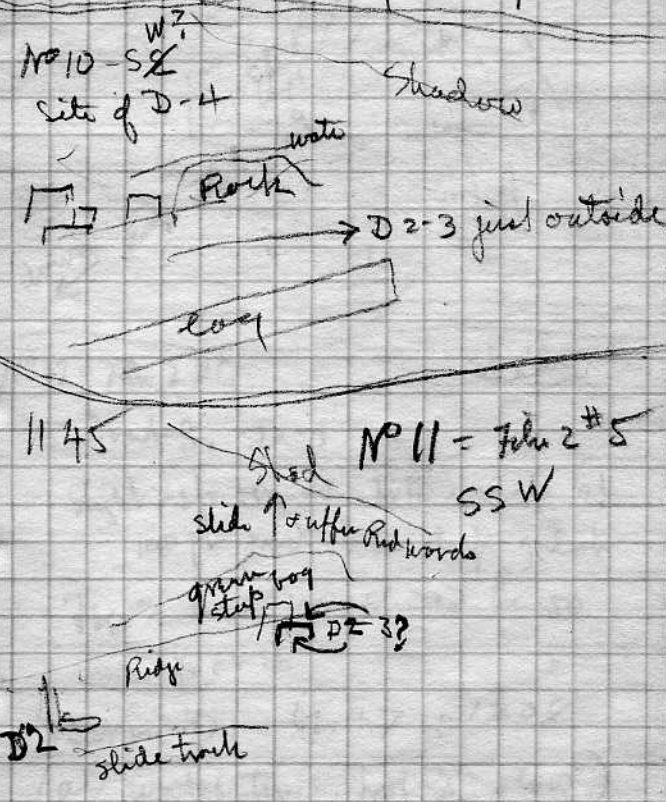 W?
No 10 - SE
Site of D-4
Shadow
water
Rock
D 2-3 just outside
Log
11 45
No 11 = Film 2 #5
SSW
Shad
slide ↑ & upper Redwoods
green bog
step
D2-3?
Ridge
D2
slide track